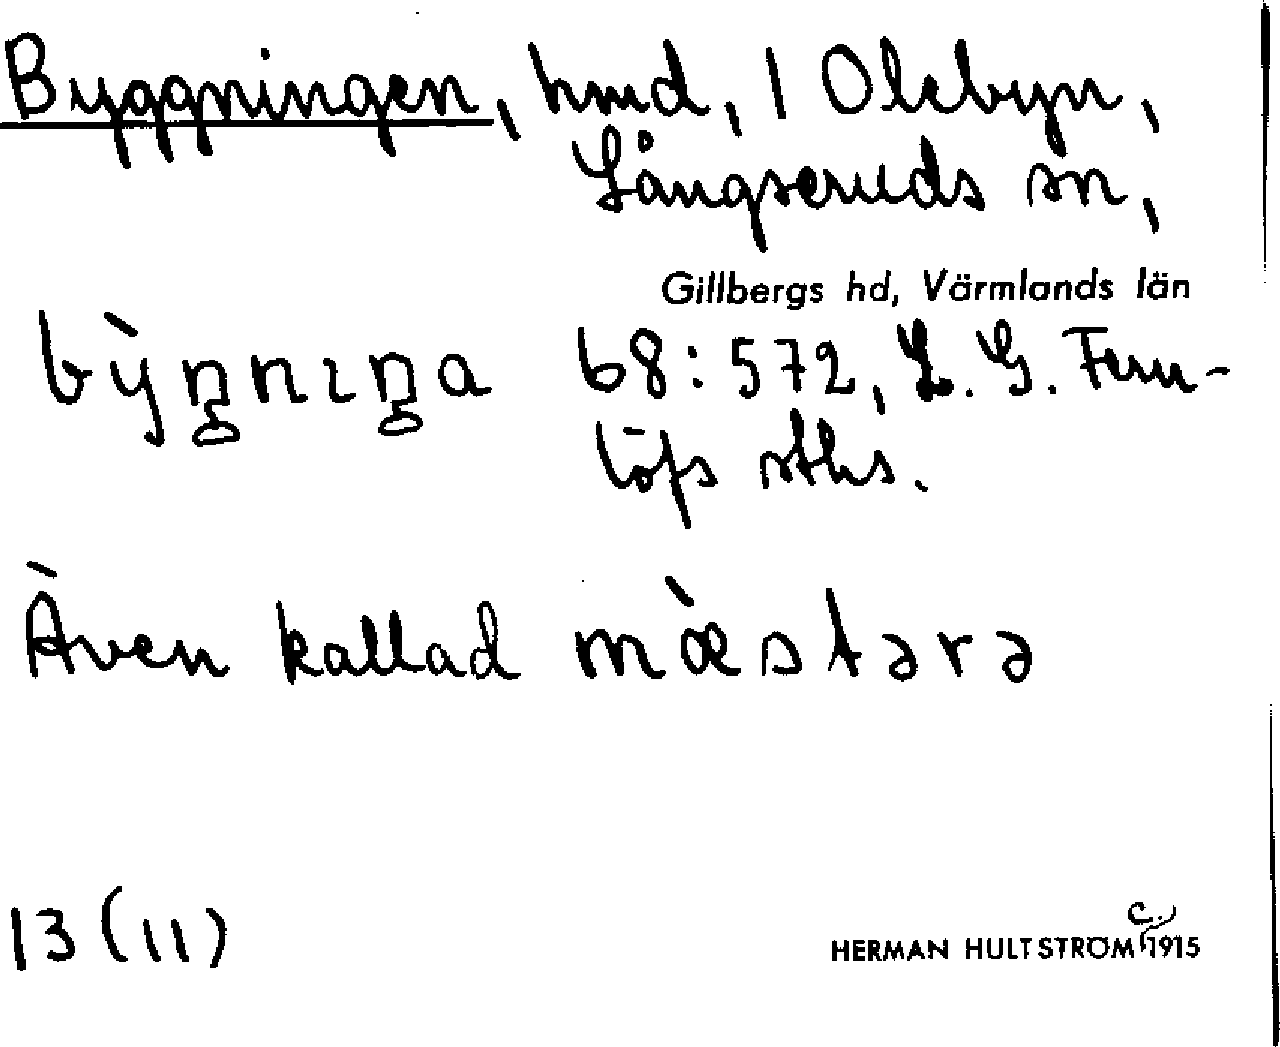 Byggningen, hmd, 1 Olebyn,
Långseruds sn,
Gillbergs hd, Värmlands län
68:572, L. G. Fern-
löfs sths.
Även kallad mæ̀stərə
13 (11)
HERMAN HULTSTRÖM c. 1915